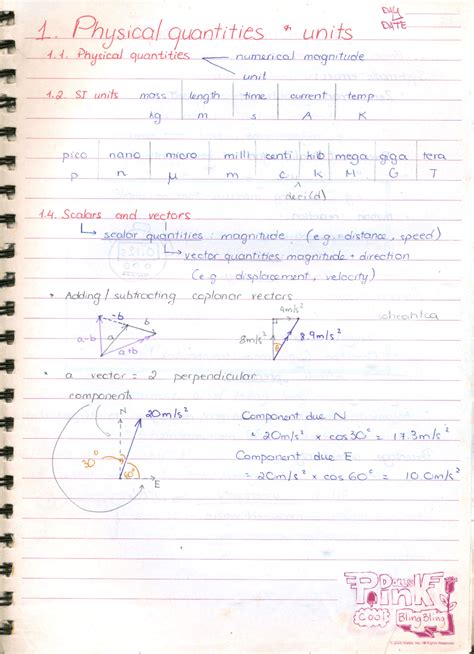 DAY
DATE
1. Physical quantities & units
1.1. Physical quantities numerical magnitude
unit
1.2. SI units mass length time current temp
kg m s A K
pico nano micro milli centi kilo mega giga tera
p n μ m c k M G T
deci(d)
1.4. Scalars and vectors
scalar quantities: magnitude (e.g. distance, speed)
vector quantities magnitude + direction
(e.g. displacement, velocity)
• Adding / subtracting coplanar vectors
-b b a-b a a+b
4m/s² 8m/s² 8.9m/s² θ
• a vector = 2 perpendicular
components
N 20m/s² 30° 60° E
Component due N
= 20m/s² × cos30° = 17.3m/s²
Component due E
= 20m/s² × cos 60° = 10.0m/s²
Pink
Cool Bling Bling